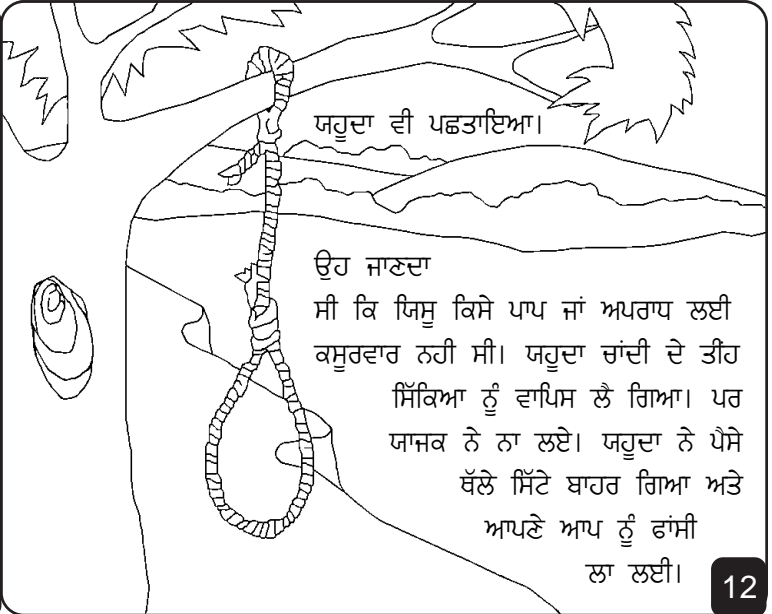 ਯਹੂਦਾ ਵੀ ਪਛਤਾਇਆ।
ਉਹ ਜਾਣਦਾ
ਸੀ ਕਿ ਯਿਸੂ ਕਿਸੇ ਪਾਪ ਜਾਂ ਅਪਰਾਧ ਲਈ
ਕਸੂਰਵਾਰ ਨਹੀ ਸੀ। ਯਹੂਦਾ ਚਾਂਦੀ ਦੇ ਤੀਂਹ
ਸਿੱਕਿਆ ਨੂੰ ਵਾਪਿਸ ਲੈ ਗਿਆ। ਪਰ
ਯਾਜਕ ਨੇ ਨਾ ਲਏ। ਯਹੂਦਾ ਨੇ ਪੈਸੇ
ਥੱਲੇ ਸਿੱਟੇ ਬਾਹਰ ਗਿਆ ਅਤੇ
ਆਪਣੇ ਆਪ ਨੂੰ ਫਾਂਸੀ
ਲਾ ਲਈ।
12